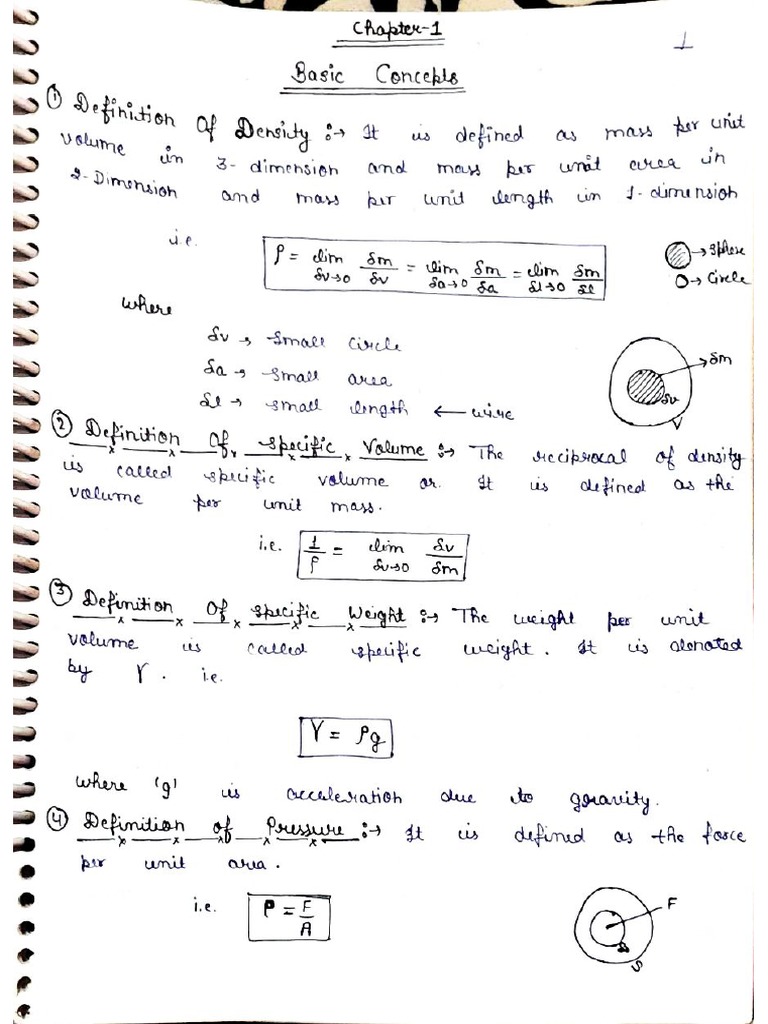 Chapter-1
1
Basic Concepts
① Definition Of Density :→ It is defined as mass per unit
volume in 3-dimension and mass per unit area in
2-Dimension and mass per unit length in 1-dimension
i.e. ρ = lim δv→0 δm/δv = lim δa→0 δm/δa = lim δl→0 δm/δl
→ Sphere
→ Circle
where
δv → small circle
δa → small area
δl → small length ← wire
δm
δv
V
② Definition Of specific Volume :→ The reciprocal of density
is called specific volume or. It is defined as the
volume per unit mass.
i.e. 1/ρ = lim δv→0 δv/δm
③ Definition Of specific Weight :→ The weight per unit
volume is called specific weight. It is denoted
by γ. i.e.
γ = ρg
where 'g' is acceleration due to gravity.
④ Definition of Pressure :→ It is defined as the force
per unit area.
i.e. P = F/A
F
S